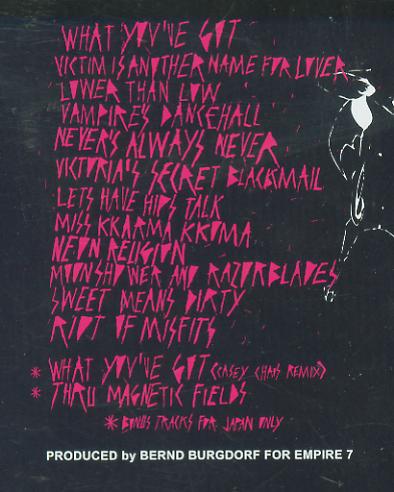 WHAT YOU'VE GOT
VICTIM IS ANOTHER NAME FOR LOVER
LOWER THAN LOW
VAMPIRE'S DANCEHALL
NEVER'S ALWAYS NEVER
VICTORIA'S SECRET BLACKMAIL
LETS HAVE HIPS TALK
MISS KKARMA KKOMA
NEON RELIGION
MOONSHOWER AND RAZORBLADES
SWEET MEANS DIRTY
RIOT OF MISFITS
* WHAT YOU'VE GOT (CASEY CHAOS REMIX)
* THRU MAGNETIC FIELDS
* BONUS TRACKS FOR JAPAN ONLY
PRODUCED by BERND BURGDORF FOR EMPIRE 7